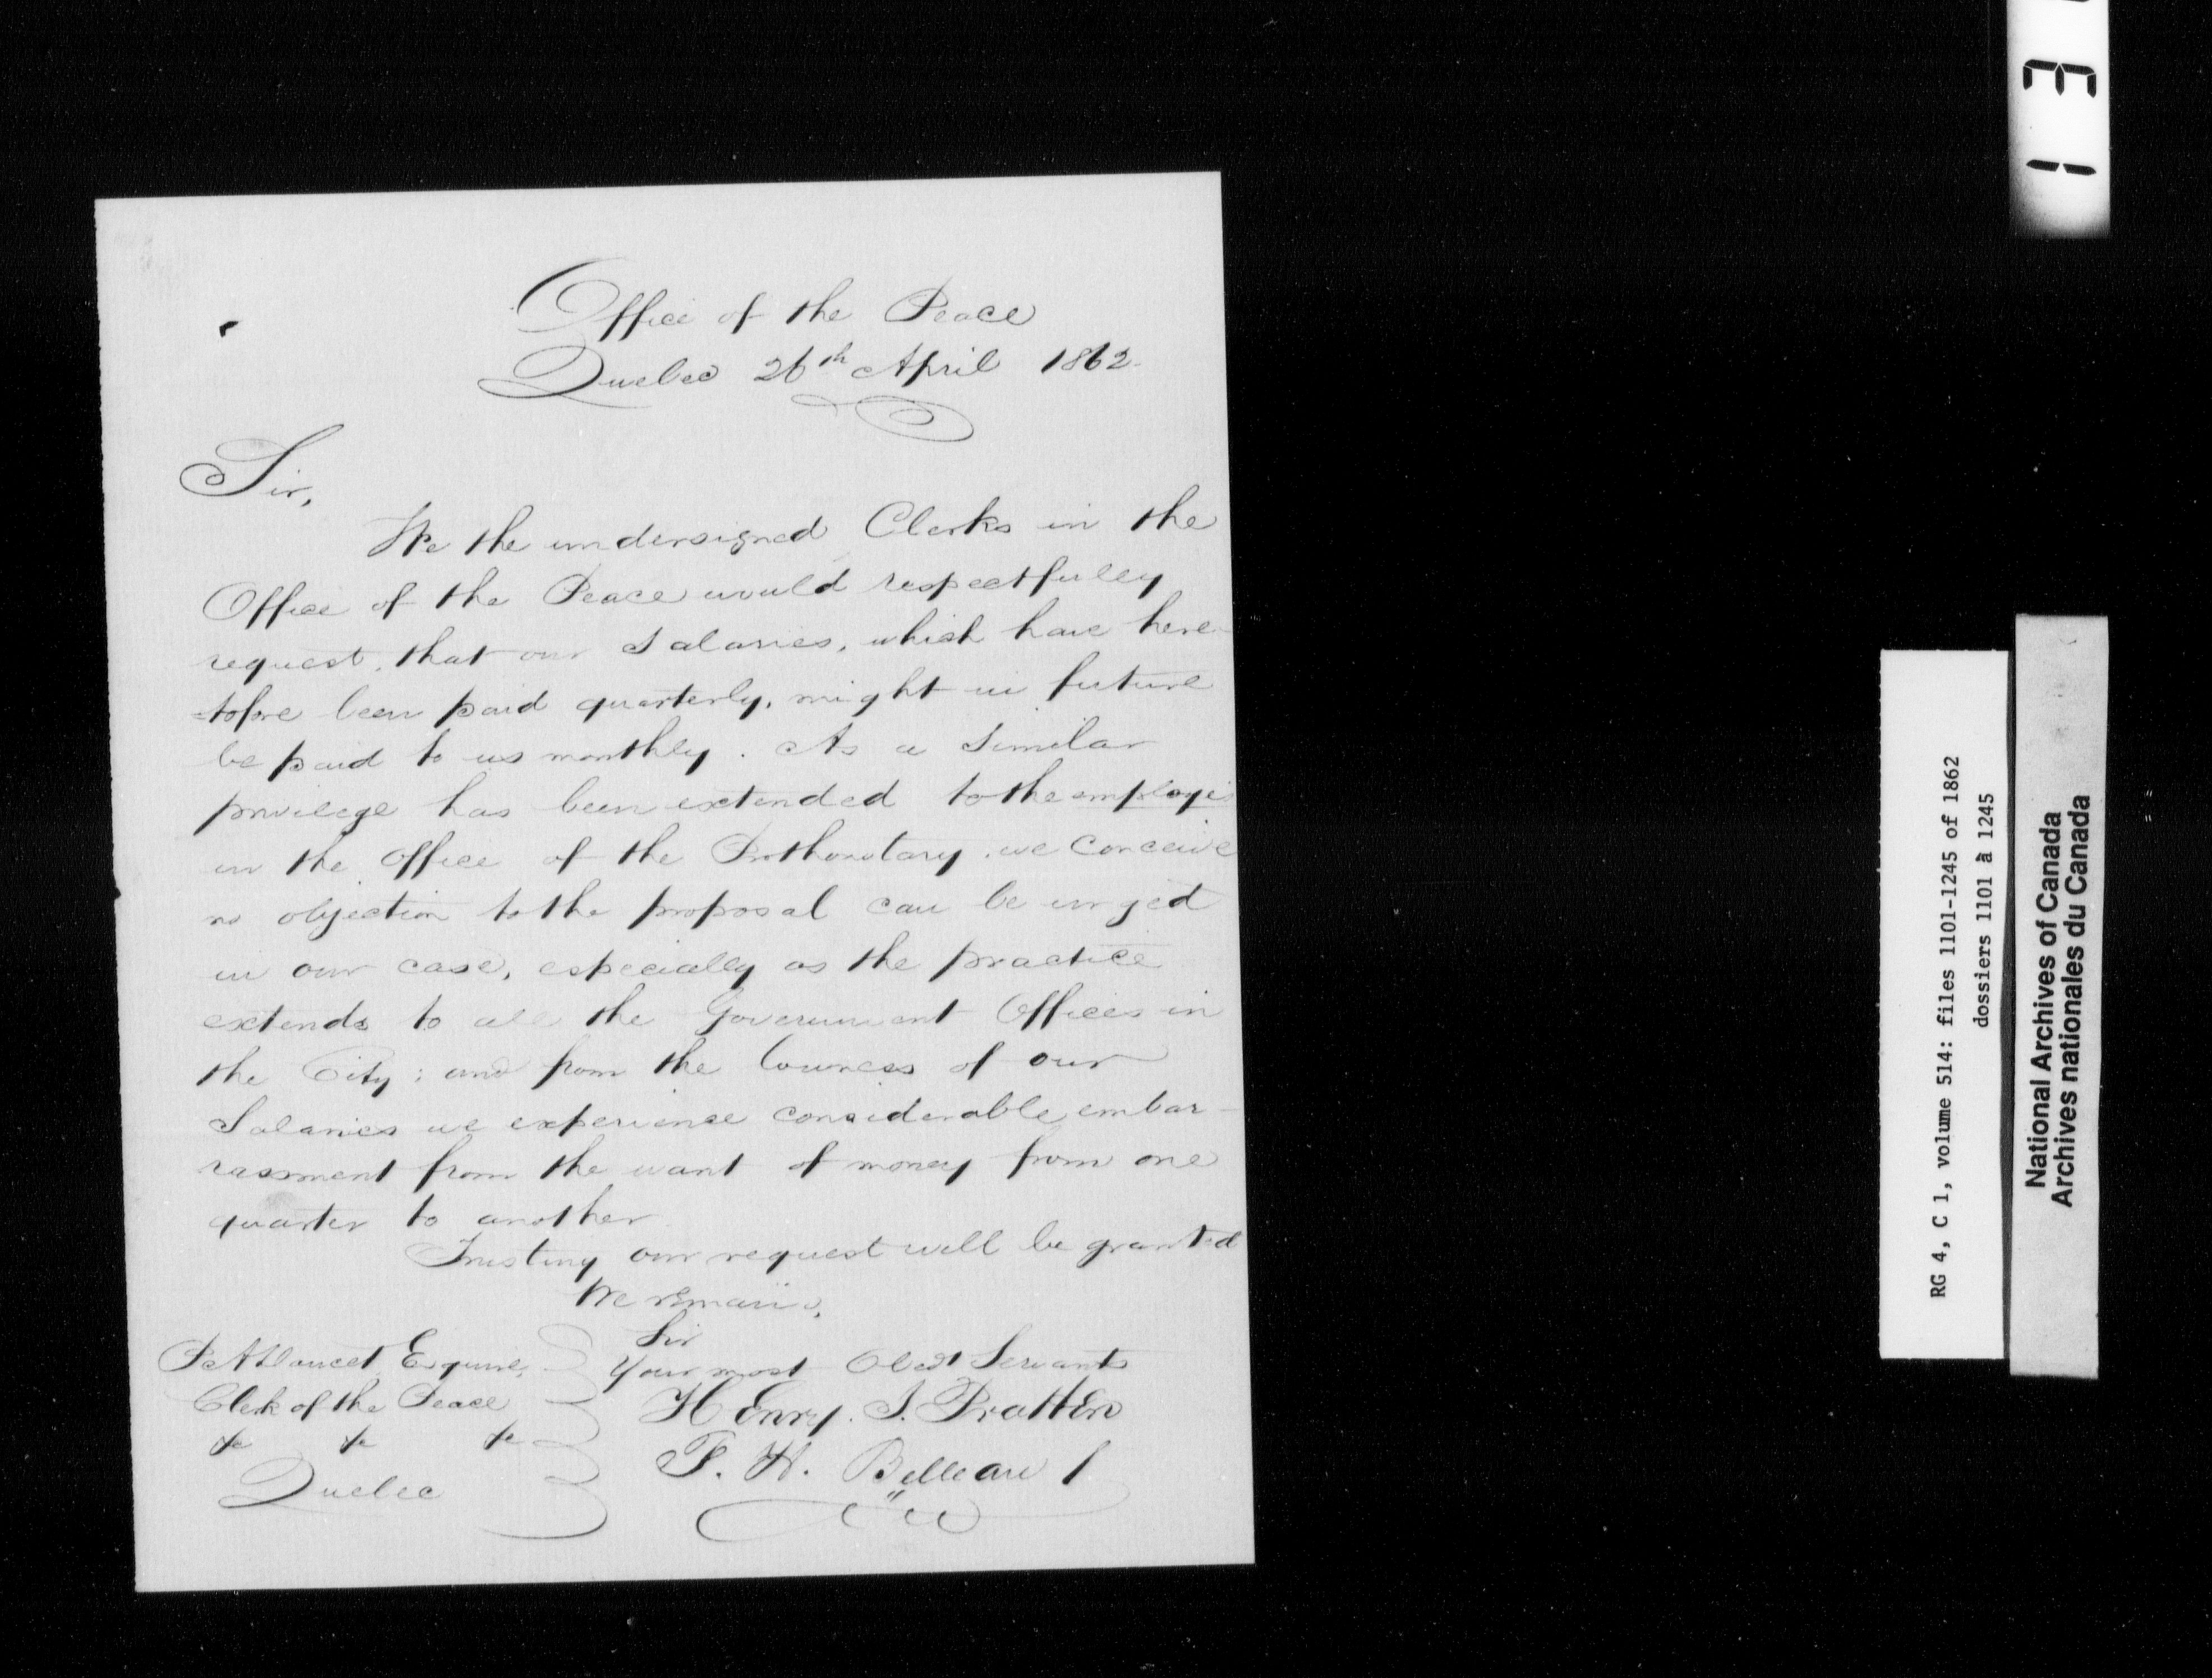 Office of the Peace
Quebec 26th April 1862
Sir,
We the undersigned Clerks in the
Office of the Peace would respectfully
request, that our Salaries, which have here-
=tofore been paid quarterly, might in future
be paid to us monthly. As a similar
privilege has been extended to the employés
in the Office of the Prothonotary, we conceive
no objection to the proposal can be urged
in our case, especially as the practice
extends to all the Government Offices in
the City; and from the lowness of our
Salaries we experience considerable embar-
rassment from the want of money from one
quarter to another
Trusting our request will be granted
We remain,
Sir
Your most Obedt Servants
Henry. S. Pratten
F. H. Belleau
P A Doucet Esquire,
Clerk of the Peace
&c &c &c
Quebec
RG 4, C 1, volume 514: files 1101-1245 of 1862
dossiers 1101 à 1245
National Archives of Canada
Archives nationales du Canada